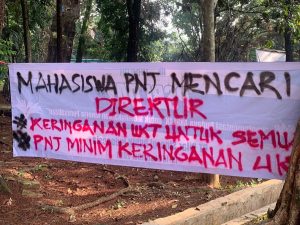 MAHASISWA PNJ MENCARI
DIREKTUR
* KERINGANAN UKT UNTUK SEMUA
* PNJ MINIM KERINGANAN UKT